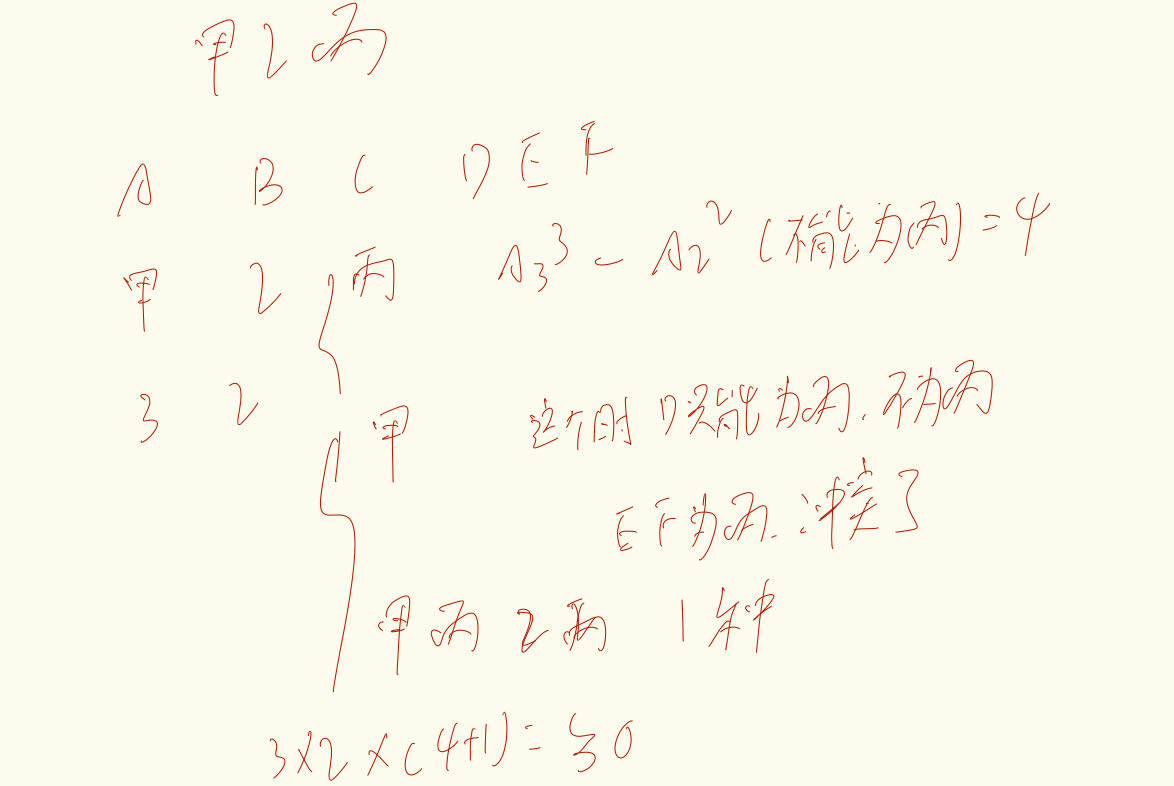 甲乙丙
A B C D E F
甲 乙 丙 A₃³ - A₂² (不能为丙) = 4
3 2
甲 这个时D只能为丙.不为丙
EF为丙.冲突了
甲丙乙丙 1种
3×2×(4+1)=30